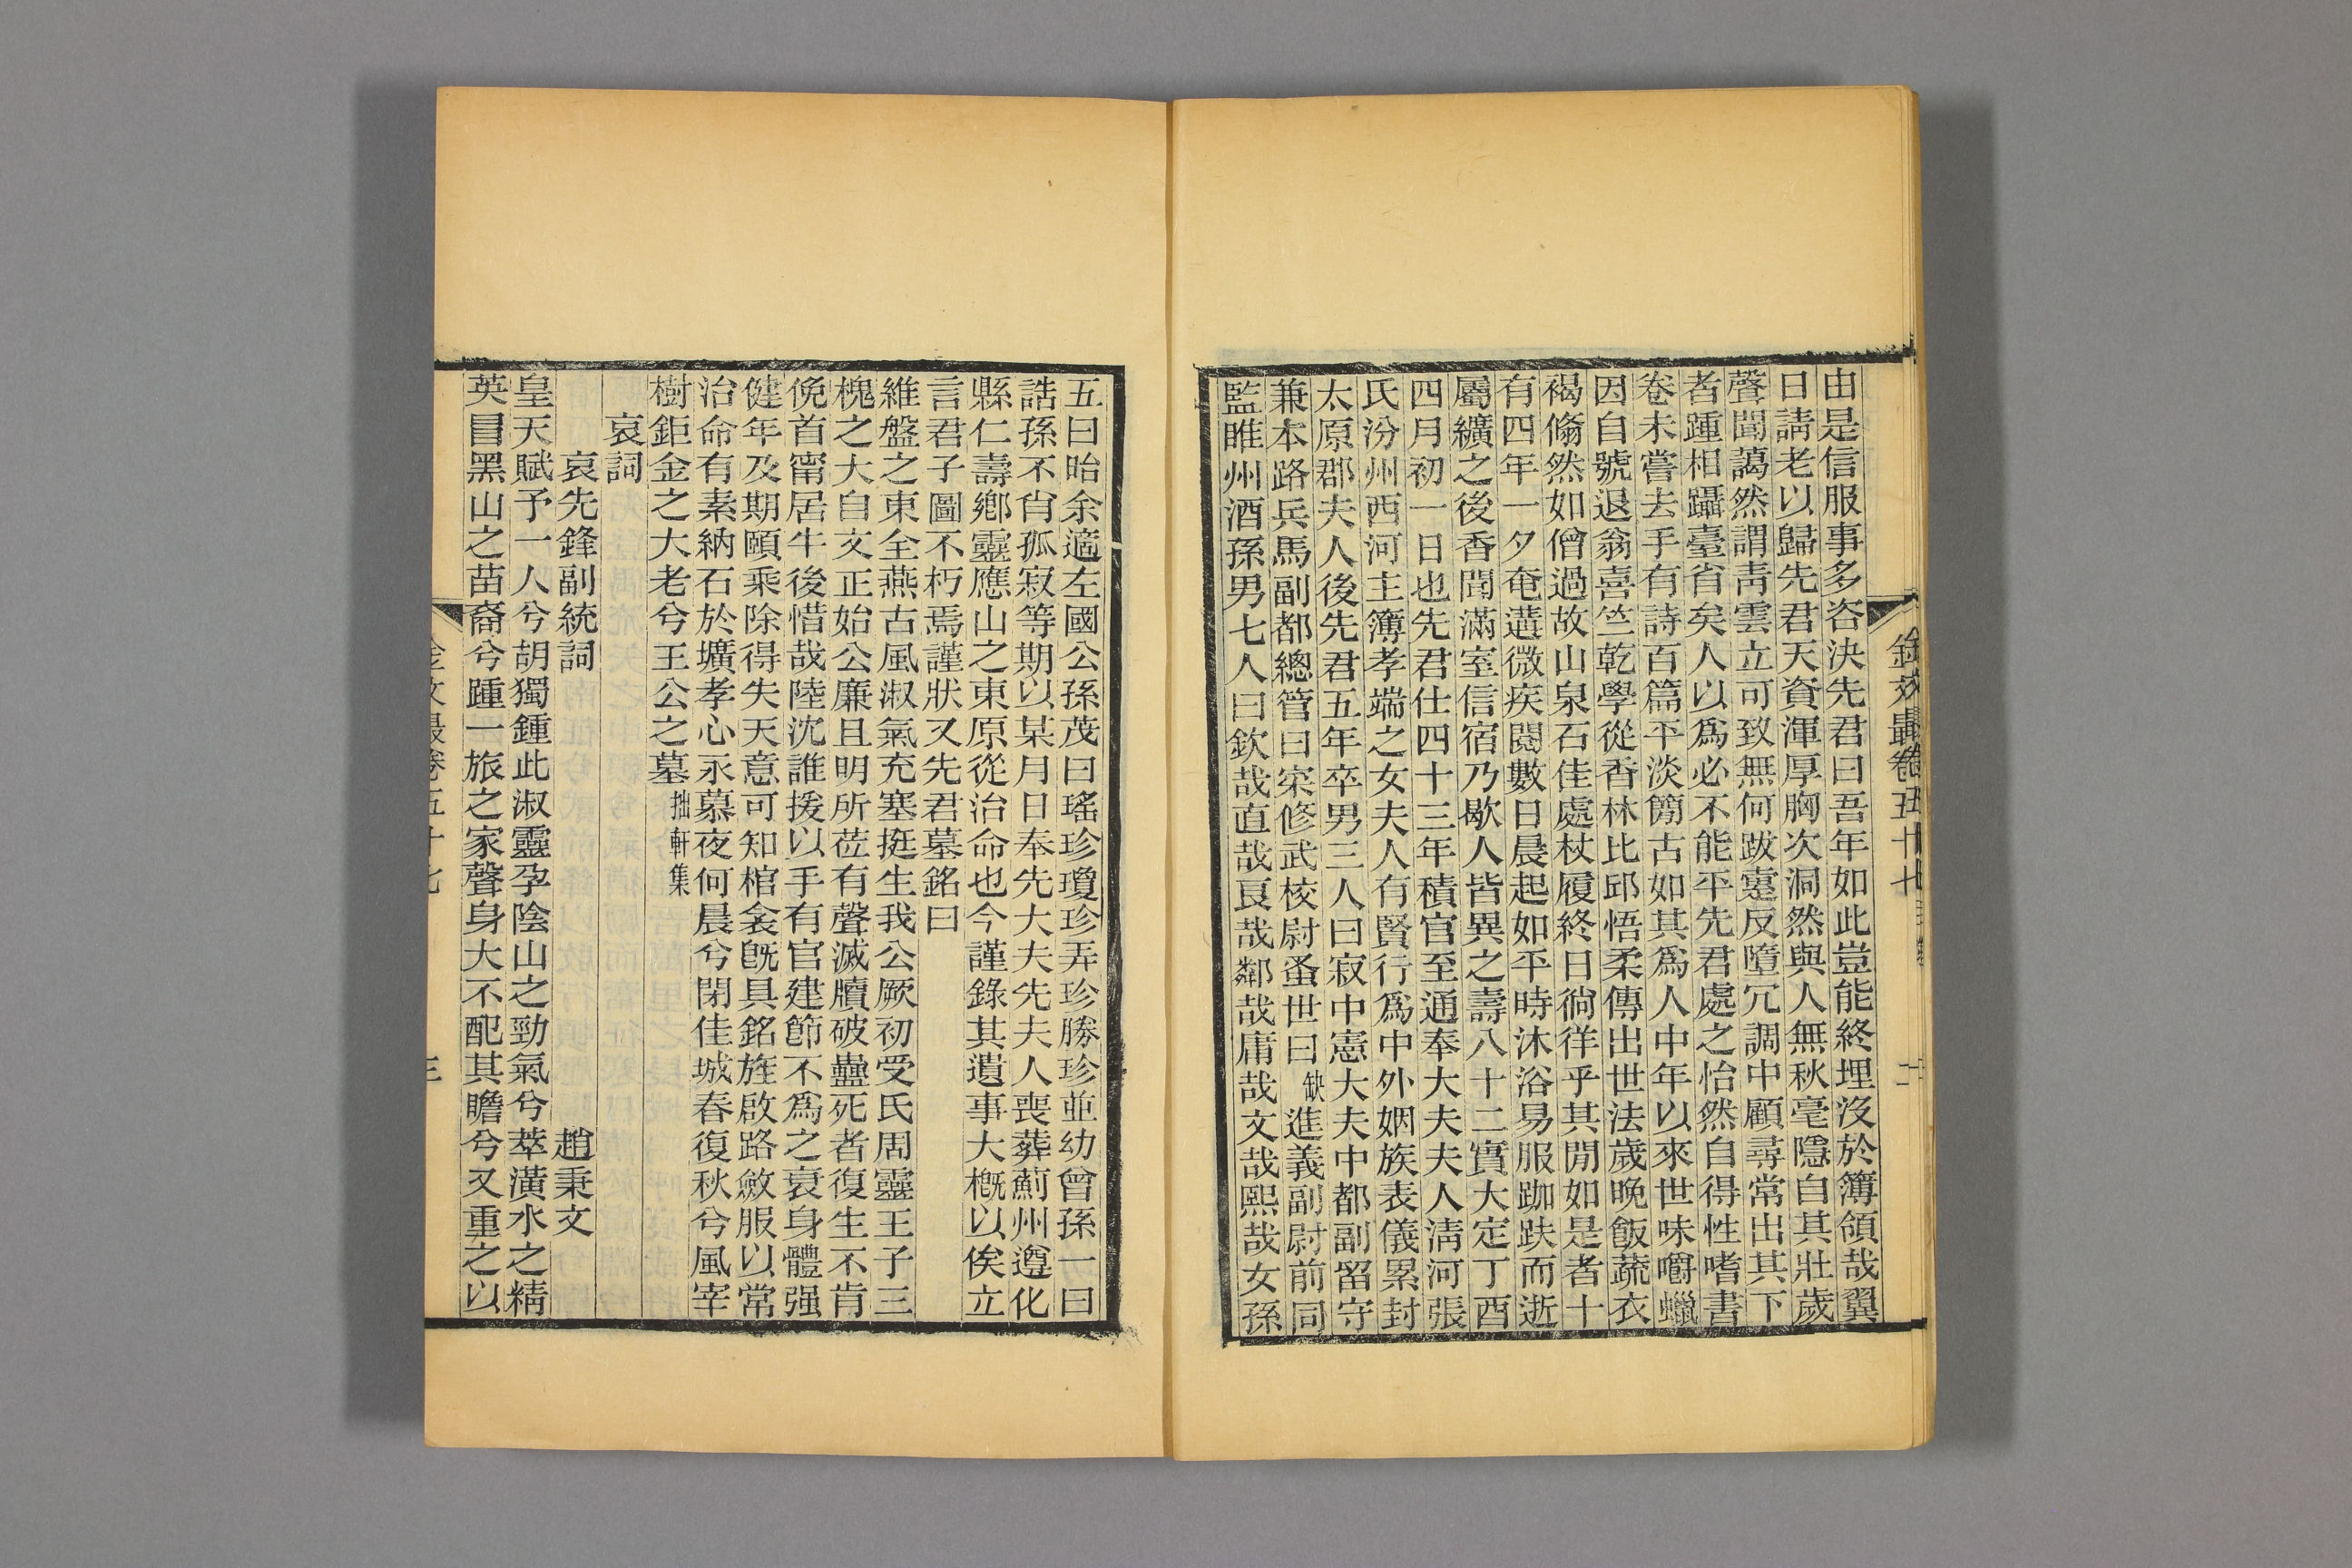 由是信服事多咨決先君曰吾年如此豈能終埋沒於簿領哉翼
日請老以歸先君天資渾厚胸次洞然與人無秋毫隱自其壯歲
聲聞藹然謂靑雲立可致無何跋疐反墮冗調中顧尋常出其下
者踵相躡臺省矣人以爲必不能平先君處之怡然自得性嗜書
卷未嘗去手有詩百篇平淡簡古如其爲人中年以來世味嚼蠟
因自號退翁喜竺乾學從香林比邱悟柔傳出世法歲晚飯蔬衣
褐翛然如僧過故山泉石佳處杖履終日徜徉乎其閒如是者十
有四年一夕奄遘微疾閱數日晨起如平時沐浴易服跏趺而逝
屬纊之後香聞滿室信宿乃歇人皆異之壽八十二實大定丁酉
四月初一日也先君仕四十三年積官至通奉大夫夫人淸河張
氏汾州西河主簿孝端之女夫人有賢行爲中外姻族表儀累封
太原郡夫人後先君五年卒男三人曰寂中憲大夫中都副留守
兼本路兵馬副都總管曰寀修武校尉蚤世曰缺進義副尉前同
監睢州酒孫男七人曰欽哉直哉良哉鄰哉庸哉文哉熙哉女孫
金文最卷五十七
二
五曰昭余適左國公孫茂曰瑤珍瓊珍弄珍勝珍並幼曾孫一曰
誥孫不肖孤寂等期以某月日奉先大夫先夫人喪葬薊州遵化
縣仁壽鄉靈應山之東原從治命也今謹錄其遺事大槪以俟立
言君子圖不朽焉謹狀又先君墓銘曰
維盤之東全燕古風淑氣充塞挺生我公厥初受氏周靈王子三
槐之大自文正始公廉且明所莅有聲滅牘破蠱死者復生不肯
俛首甯居牛後惜哉陸沈誰援以手有官建節不爲之衰身體强
健年及期頤乘除得失天意可知棺衾旣具銘旌啟路斂服以常
治命有素納石於壙孝心永慕夜何晨兮閉佳城春復秋兮風宰
樹鉅金之大老兮王公之墓拙軒集
哀詞
哀先鋒副統詞 趙秉文
皇天賦予一人兮胡獨鍾此淑靈孕陰山之勁氣兮萃潢水之精
英冒黑山之苗裔兮踵一旅之家聲身大不配其瞻兮又重之以
金文最卷五十七
三